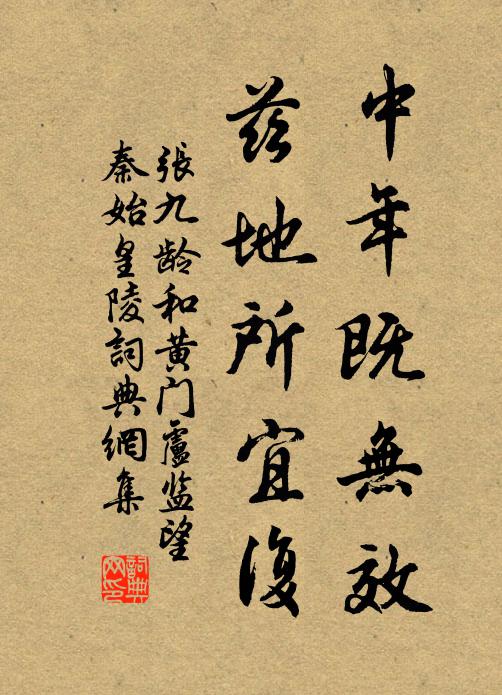 中年既無效
茲地所宜復
張九龄和黄门盧监望
秦始皇陵詞典網集
詞典
网印